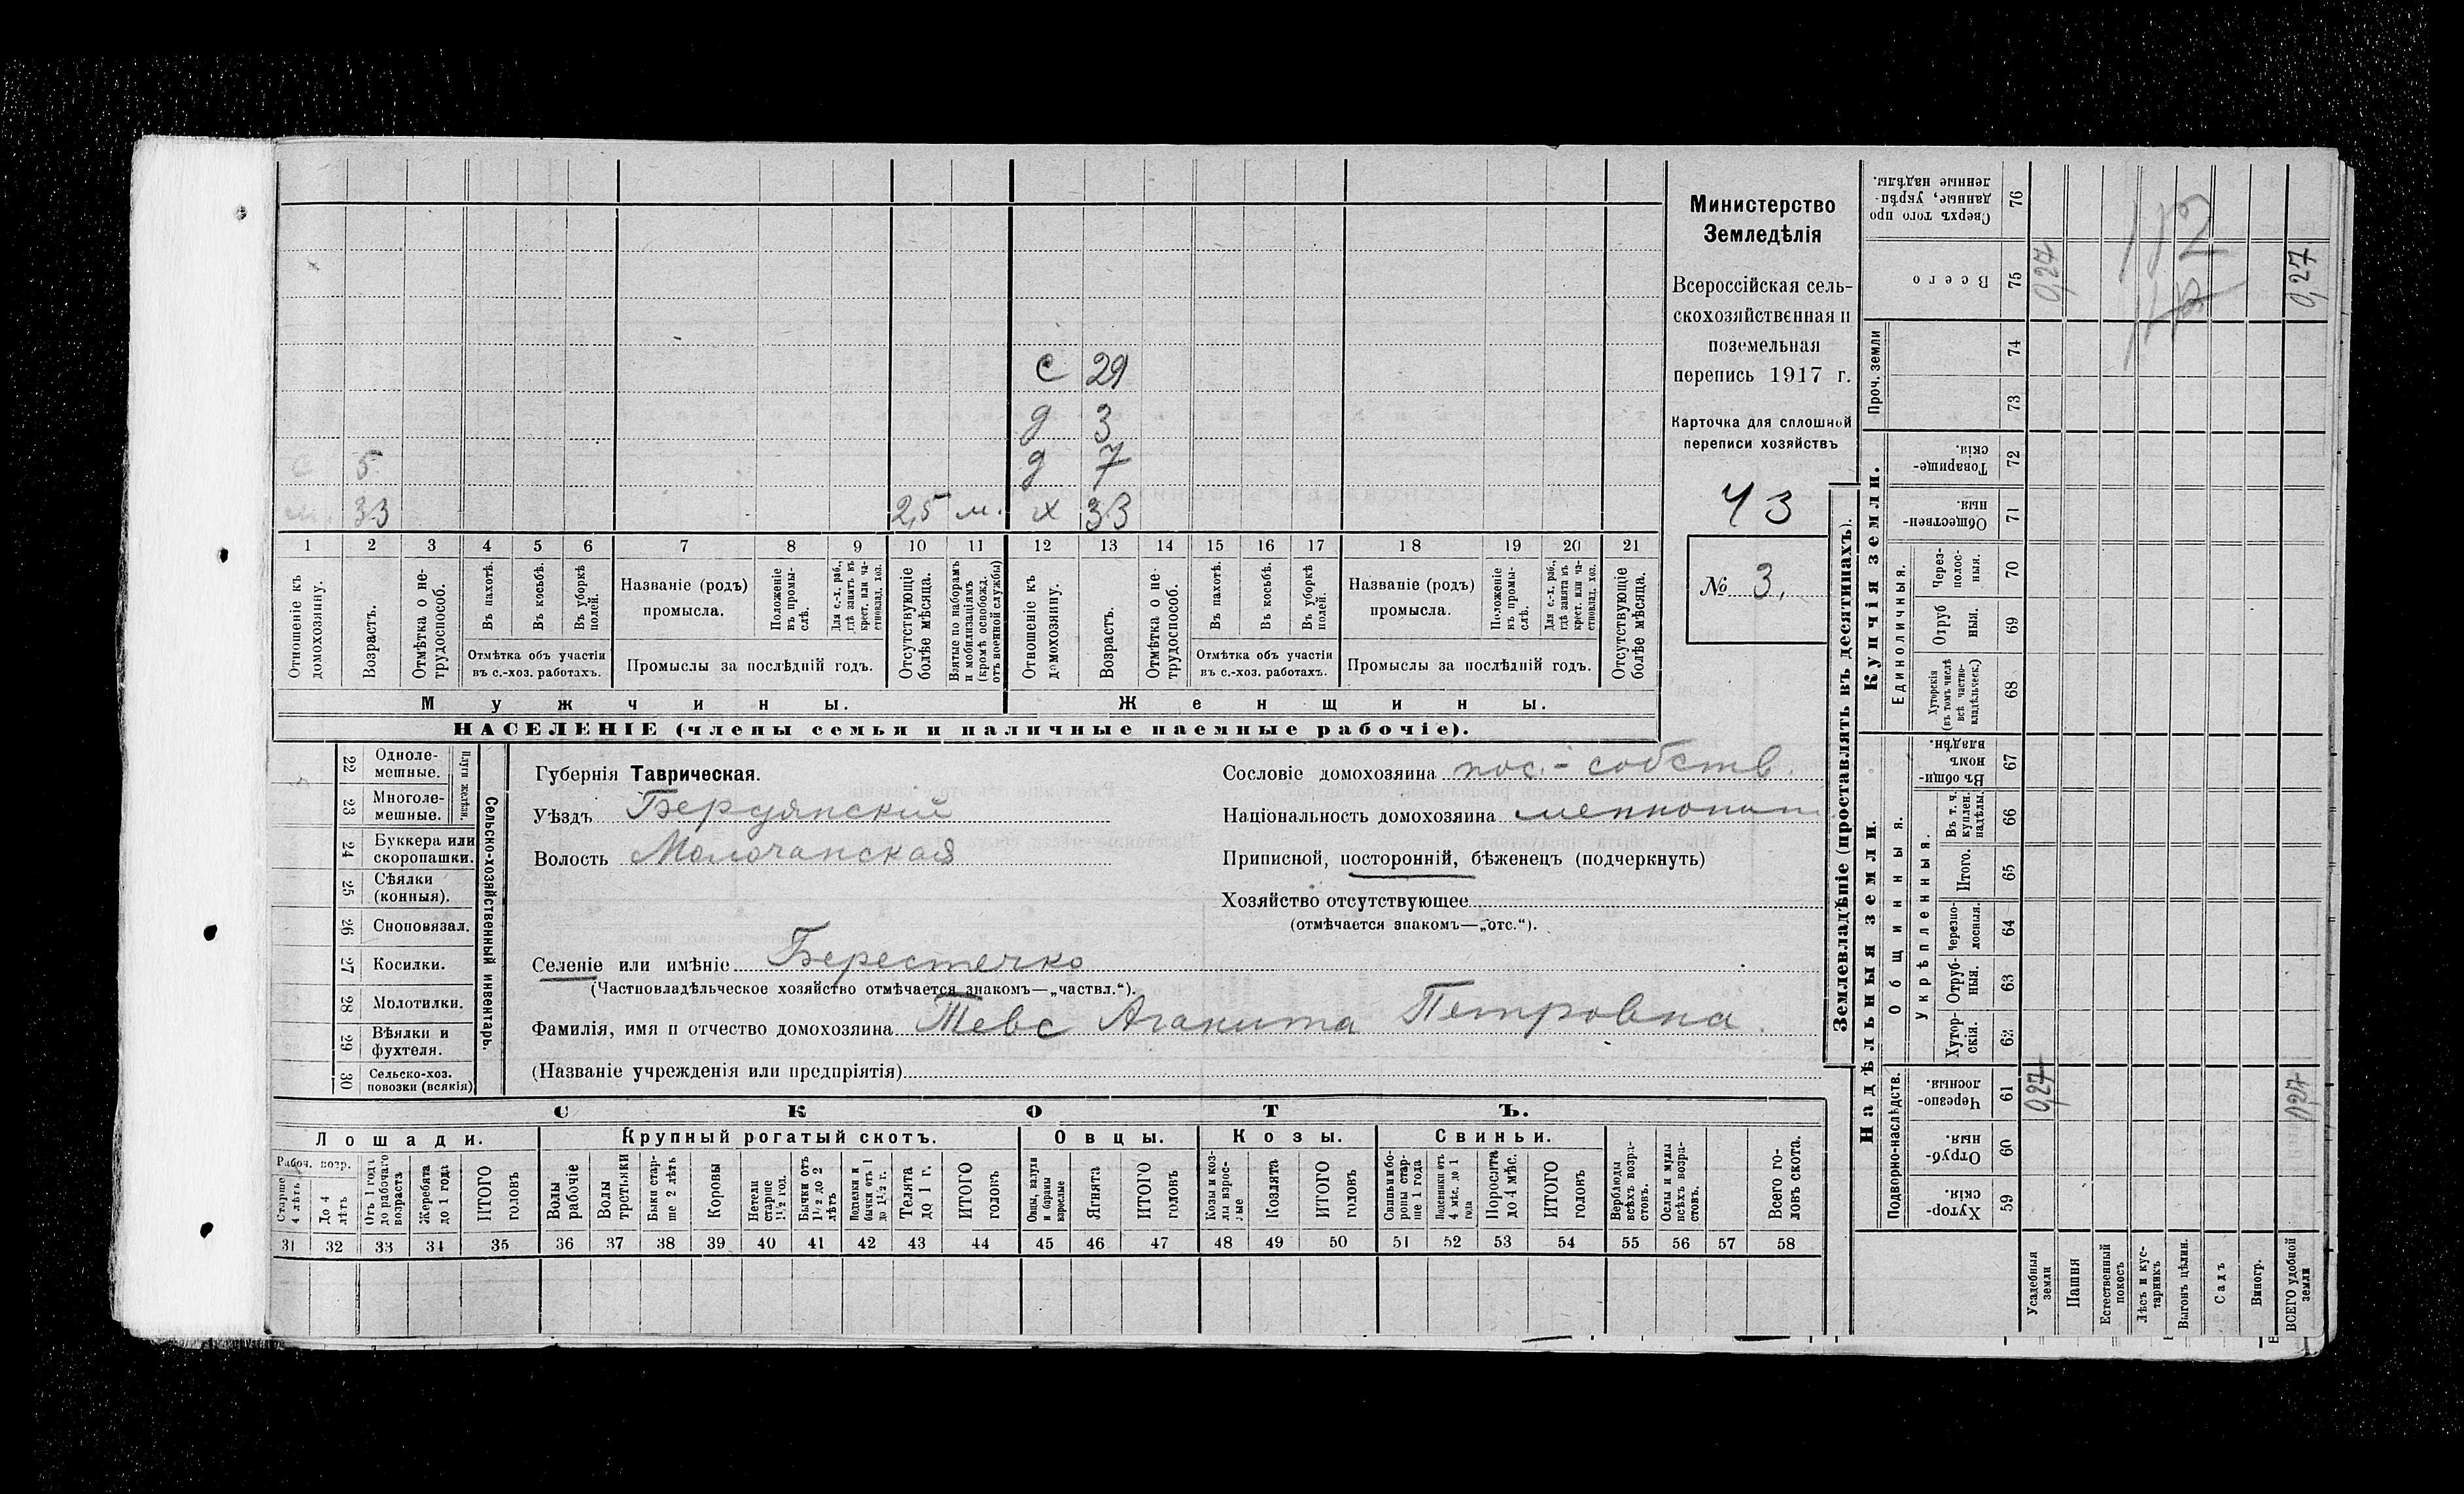 с 29
д 3
с 5 д 7
м. 33 2,5 м. х 33
1 2 3 4 5 6 7 8 9 10 11 12 13 14 15 16 17 18 19 20 21
Отношеніе къ домохозяину.
Возрастъ.
Отмѣтка о не-трудоспособ.
Въ пахотѣ.
Въ косьбѣ.
Въ уборкѣ полей.
Отмѣтка объ участіи
въ с.-хоз. работахъ.
Названіе (родъ)
промысла.
Положеніе въ промы-слѣ.
Для с.-х. раб., гдѣ занятъ въ крест. или ча-стновлад. хоз.
Промыслы за послѣдній годъ.
Отсутствующіе болѣе мѣсяца.
Взятые по наборамъ и мобилизаціямъ (кромѣ освобожд. отъ военной службы)
Отношеніе къ домохозяину.
Возрастъ.
Отмѣтка о не-трудоспособ.
Въ пахотѣ.
Въ косьбѣ.
Въ уборкѣ полей.
Отмѣтка объ участіи
въ с.-хоз. работахъ.
Названіе (родъ)
промысла.
Положеніе въ промы-слѣ.
Для с.-х. раб., гдѣ занятъ въ крест. или ча-стновлад. хоз.
Промыслы за послѣдній годъ.
Отсутствующіе болѣе мѣсяца.
Мужчины. Женщины.
НАСЕЛЕНІЕ (члены семьи и наличные наемные рабочіе).
Министерство
Земледѣлія
Всероссійская сель-
скохозяйственная и
поземельная
перепись 1917 г.
Карточка для сплошной
переписи хозяйствъ
43
№ 3.
Сельско-хозяйственный инвентарь.
Плуги желѣзн.
22 Одноле-
мешные.
23 Многоле-
мешные.
24 Буккера или
скоропашки.
25 Сѣялки
(конныя).
26 Сноповязал.
27 Косилки.
28 Молотилки.
29 Вѣялки и
фухтеля.
30 Сельско-хоз.
повозки (всякія)
Губернія Таврическая.
Уѣздъ Бердянский
Волость Молочанская
Сословіе домохозяина пос.-собств.
Національность домохозяина меннонит
Приписной, посторонній, бѣженецъ (подчеркнуть)
Хозяйство отсутствующее
(отмѣчается знакомъ—„отс.“).
Селеніе или имѣніе Берестечко
(Частновладѣльческое хозяйство отмѣчается знакомъ—„частвл.“).
Фамилія, имя и отчество домохозяина Тевс Аганита Петровна.
(Названіе учрежденія или предпріятія)
СКОТЪ.
Лошади. Крупный рогатый скотъ. Овцы. Козы. Свиньи.
Рабоч. возр.
Старше 4 лѣтъ
До 4 лѣтъ
Отъ 1 года до рабочаго возраста
Жеребята до 1 года
ИТОГО головъ
Волы рабочіе
Волы третьяки
Быки стар-ше 2 лѣтъ
Коровы
Нетели старше 1½ год.
Бычки отъ 1½ до 2 лѣтъ
Подтелки и бычки отъ 1 до 1½ г.
Телята до 1 г.
ИТОГО головъ
Овцы, валухи и бараны взрослые
Ягнята
ИТОГО головъ
Козы и коз-лы взрос-лые
Козлята
ИТОГО головъ
Свиньи и бо-ровы стар-ше 1 года
Подсвинки отъ 4 мѣс. до 1 года
Поросята до 4 мѣс.
ИТОГО головъ
Верблюды всѣхъ возра-стовъ.
Ослы и мулы всѣхъ возра-стовъ.
Всего го-ловъ скота.
31 32 33 34 35 36 37 38 39 40 41 42 43 44 45 46 47 48 49 50 51 52 53 54 55 56 57 58
Землевладѣніе (проставлять въ десятинахъ).
Надѣльныя земли.
Купчія земли.
Проч. земли
Подворно-наслѣдств.
Общинныя.
Укрѣпленныя.
Единоличныя.
Сверхъ того про-данные, укрѣп-ленные надѣлы. 76
Всего 75 0,27 0,27
112
74
73
Товарище-скія. 72
Обществен-ныя. 71
Через-полос-ныя. 70
Отруб ныя. 69
Хуторскія (въ томъ числѣ всѣ частно-владѣльческ.) 68
Въ общи-номъ владѣн. 67
Въ т. ч. куплен. надѣлы. 66
Итого. 65
Черезпо-лосныя. 64
Отруб-ныя. 63
Хутор-скія. 62
Черезпо-лосныя. 61 0,27 0,27
Отруб-ныя. 60
Хутор-скія. 59
Усадебныя земли
Пашня
Естественный покосъ
Лѣсъ и кус-тарникъ
Выгонъ цѣлин.
Садъ
Виногр.
ВСЕГО удобной земли